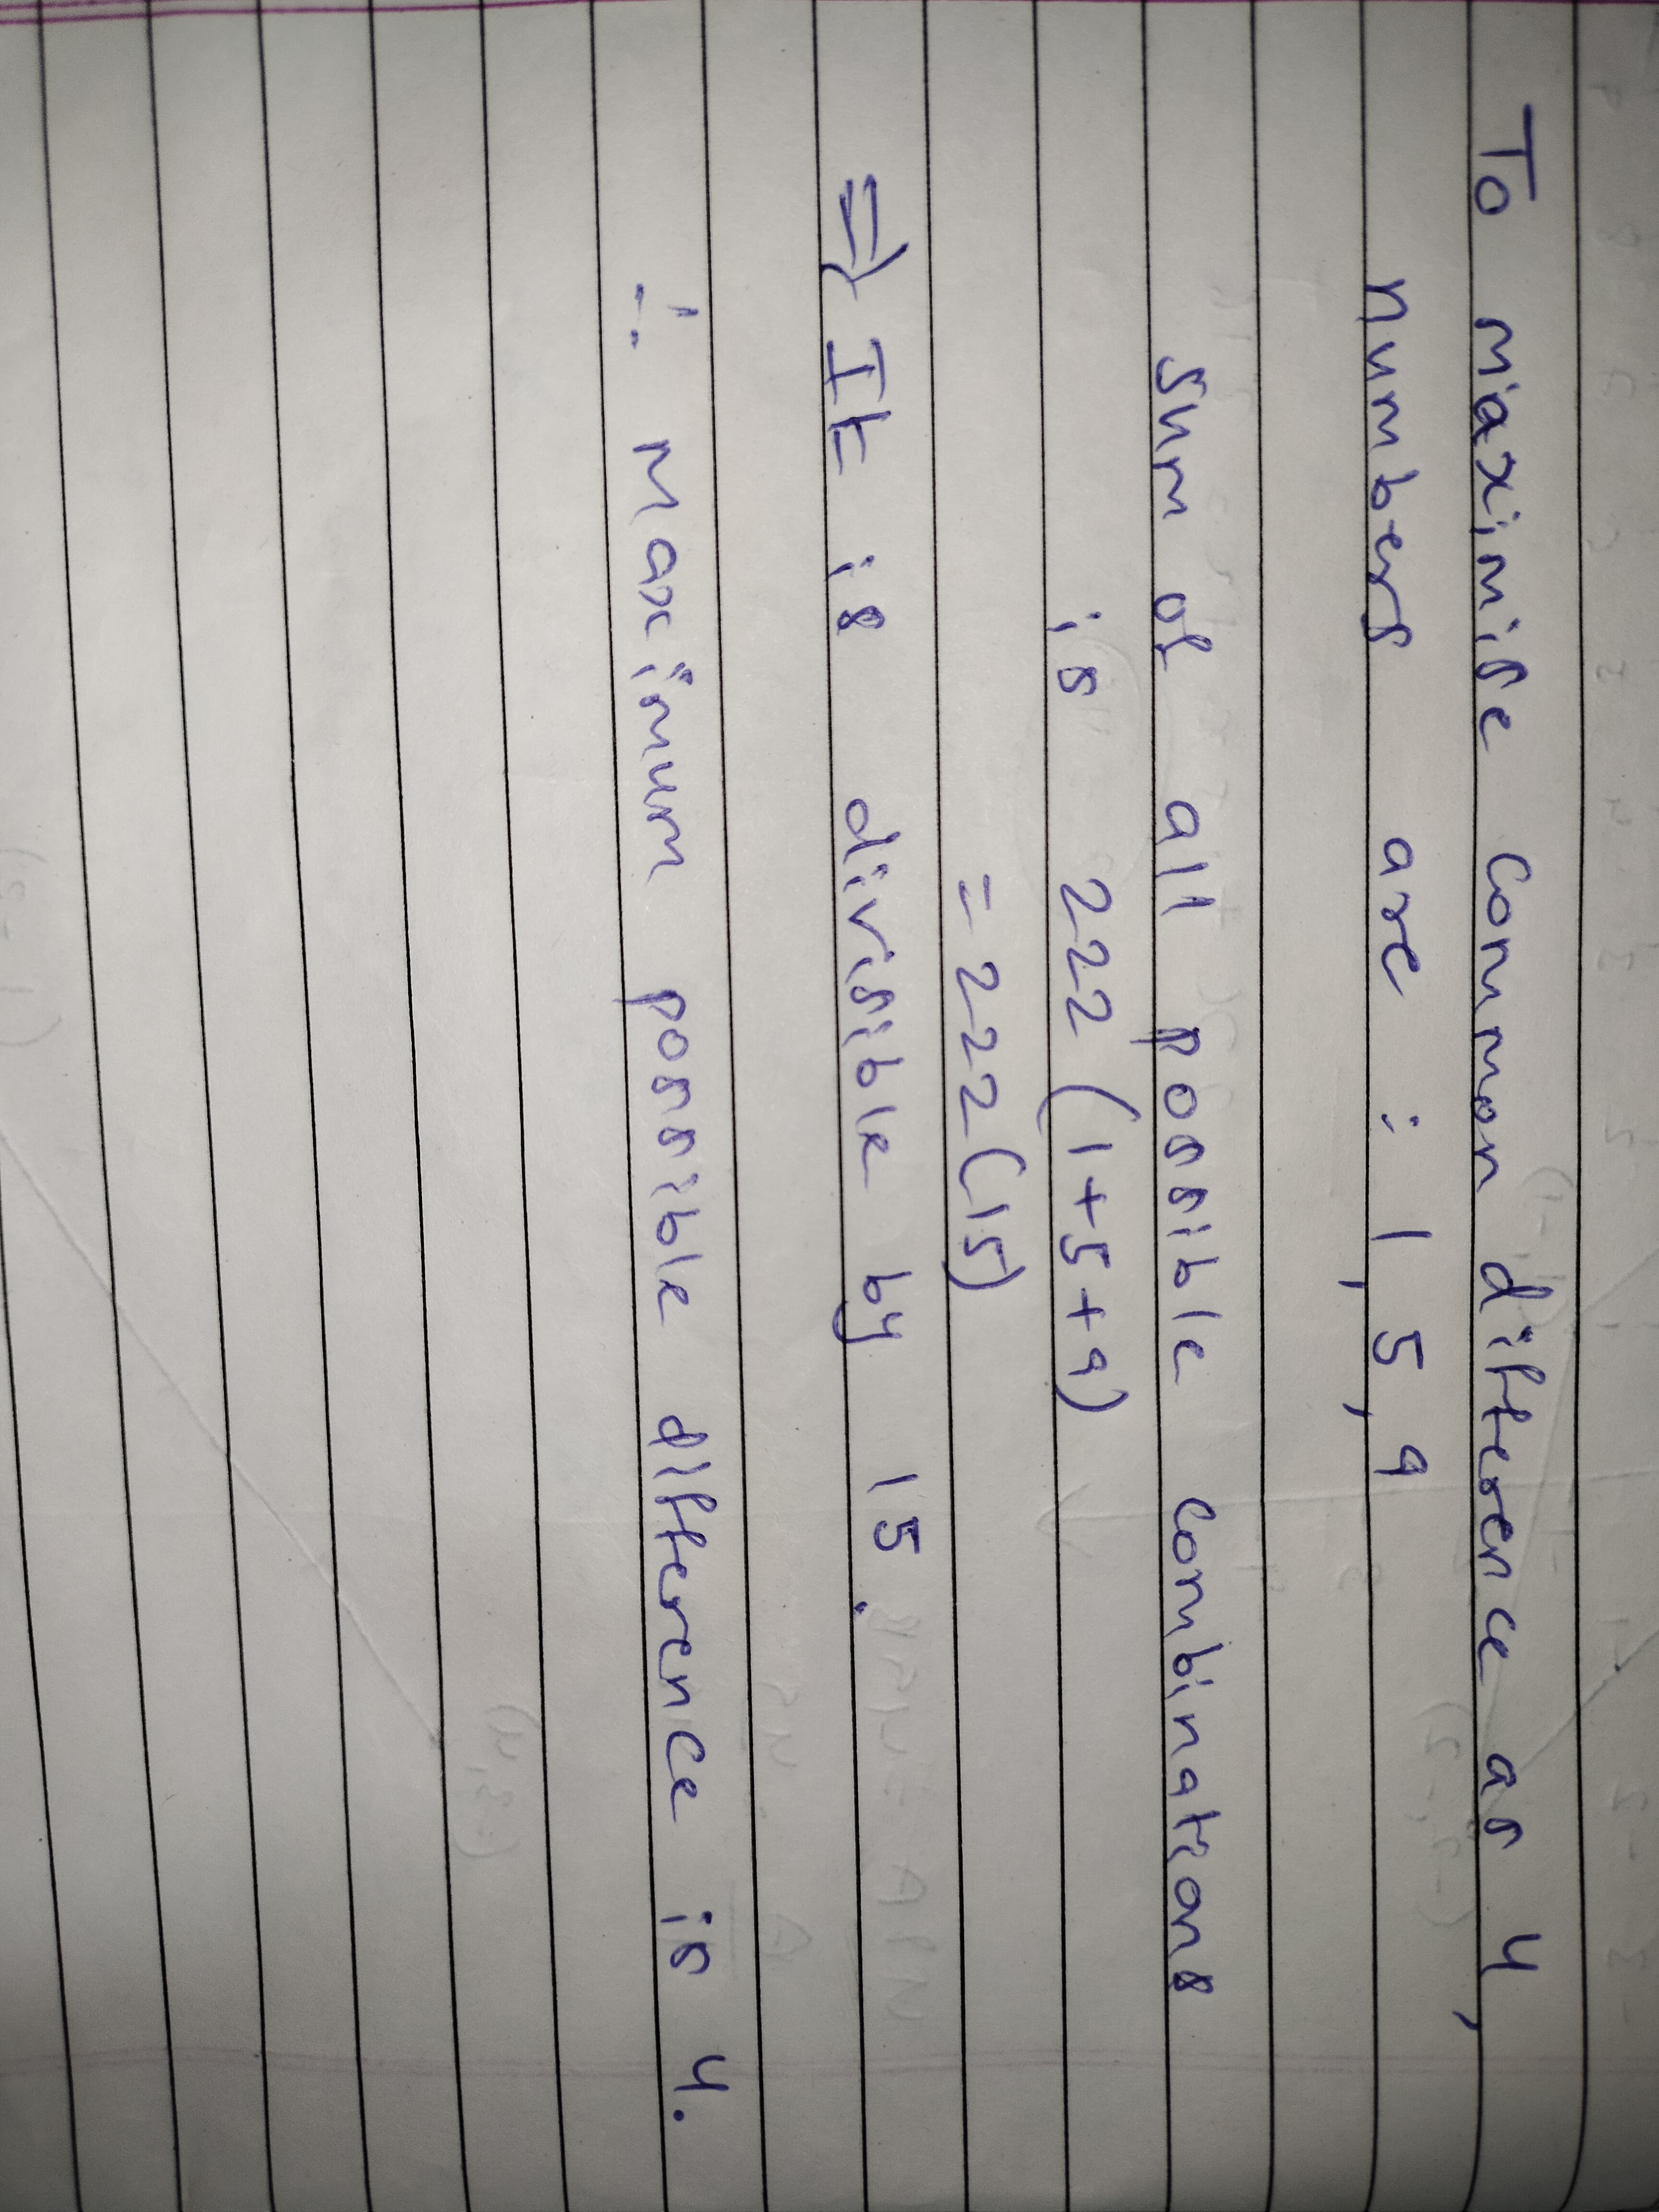 To maximise common difference as 4,
numbers are : 1, 5, 9
Sum of all possible combinations
is 222 (1+5+9)
= 222 (15)
⇒ It is divisible by 15.
∴ Maximum possible difference is 4.